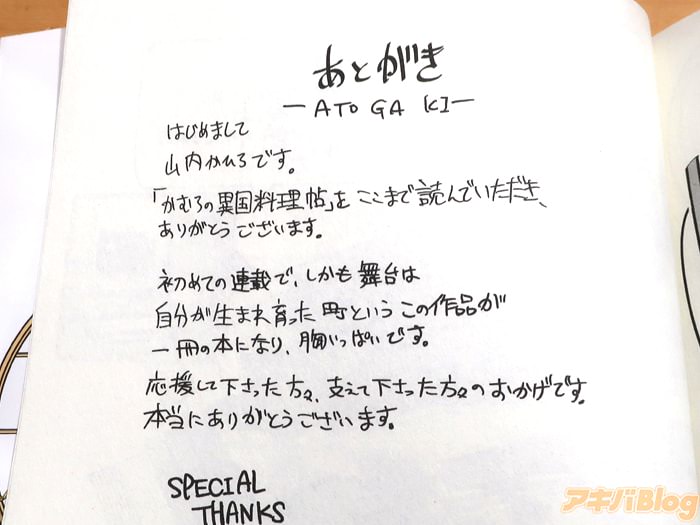 あとがき
ーATOGAKIー
はじめまして
山内かむろです。
「かむろの異国料理帖」をここまで読んでいただき、
ありがとうございます。
初めての連載で、しかも舞台は
自分が生まれ育った町というこの作品が
一冊の本になり、胸いっぱいです。
応援して下さった方々、支えて下さった方々のおかげです。
本当にありがとうございます。
SPECIAL
THANKS
アキバBlog